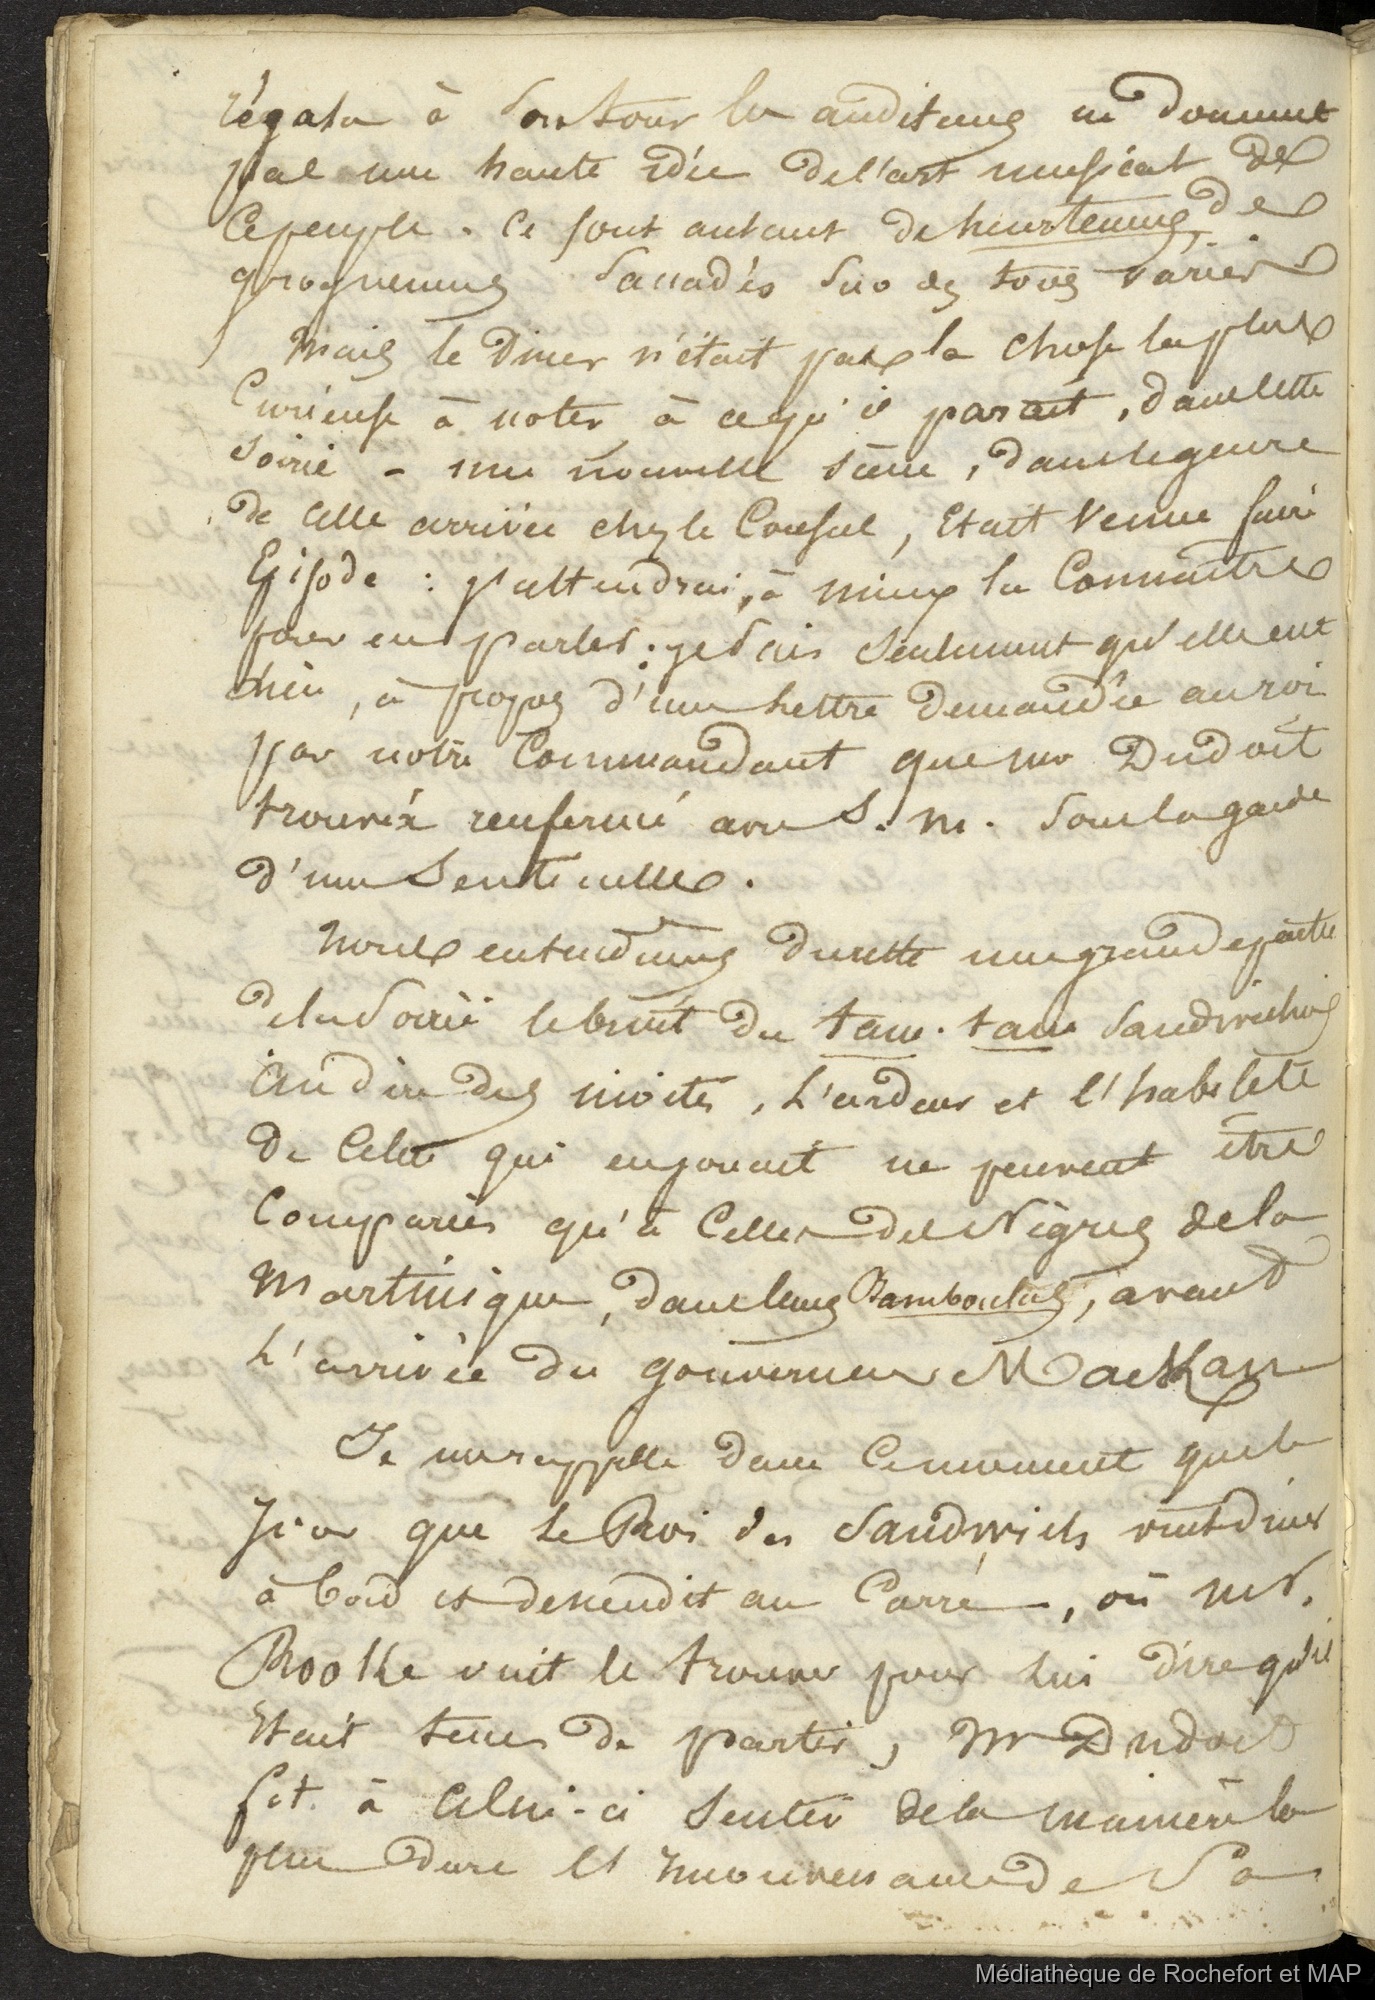 régala à son tour les auditeurs ne donnent
pas une haute idée de l'art musical de
ce peuple. Ce sont autant de heurtemens, de
grognemens saccadés sur des tons variés
Mais le diner n'était pas la chose la plus
Curieuse à noter à ce qu'il parait, dans cette
soirée - une nouvelle scène, dans le genre
de celle arrivée chez le Consul, était venue faire
Episode : j'attendrai, à mieux la Connaitre
pour en parler : je sais seulement qu'elle eut
lieu, à propos d'une lettre demandée au roi
par notre Commandant que mr Dudoit
trouva renfermé avec S. M. sous la garde
d'une Sentinelle.
Nous entendimes durant une grande partie
de la soirée le bruit du tam-tam sandwichien
au dire des invités, l'ardeur et l'habileté
de celui qui en jouait ne peuvent être
Comparées qu'à Celles des Nègres de la
Martinique, dans leurs Bamboulas, avant
L'arrivée du gouverneur Mackau
Je me rappelle dans ce moment que le
Jour que le Roi des Sandwich vint diner
à bord et descendit au Carré, où Mr.
Rooke vint le trouver pour lui dire qu'il
était tems de partir, Mr Dudoit
fit à celui-ci sentir de la manière la
plus dure l'inconvenance de sa
Médiathèque de Rochefort et MAP